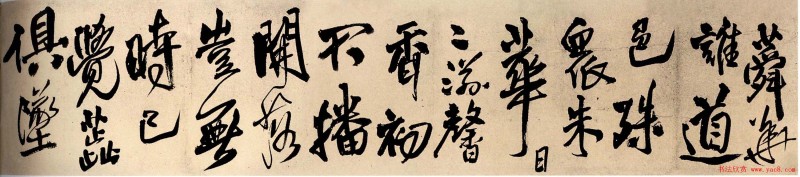 蕣華
誰道
色殊
眾朱
華日
二溢馨
香初
不播
開落
豈無
時已
覺蕊
俱墜
书法欣赏 www.yac8.com